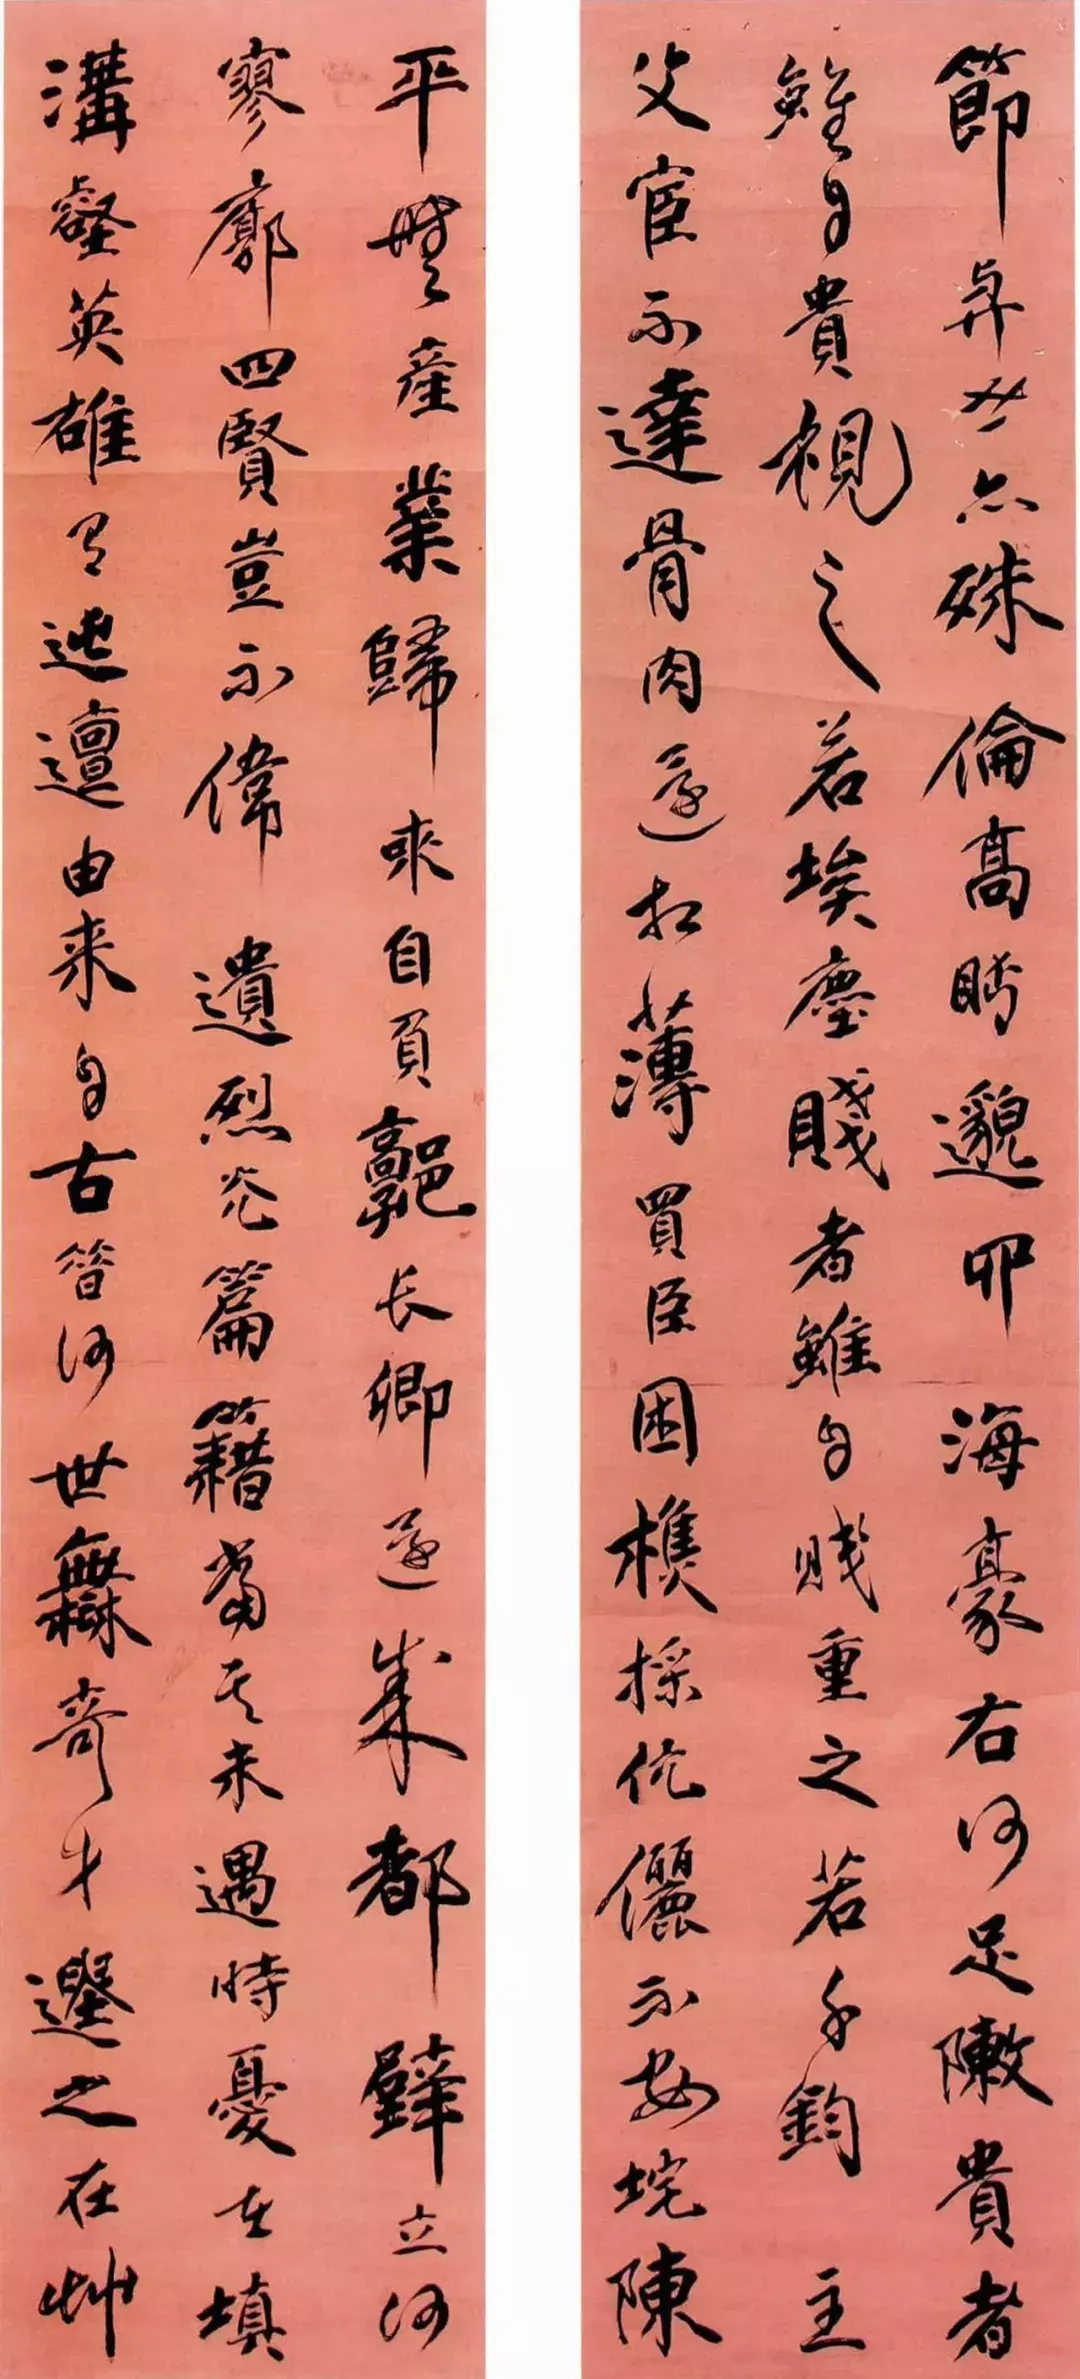 節與世亦殊倫高眄邈四海豪右何足陳貴者
雖自貴視之若埃塵賤者雖自賤重之若千鈞主
父宦不達骨肉還相薄買臣困樵採伉儷不安垞陳
平無產業歸來自負郭長卿還成都壁立何
寥廓四賢豈不偉遺烈光篇籍當其未遇時憂在填
溝壑英雄有迍邅由来自古昔何世無奇才遺之在艸